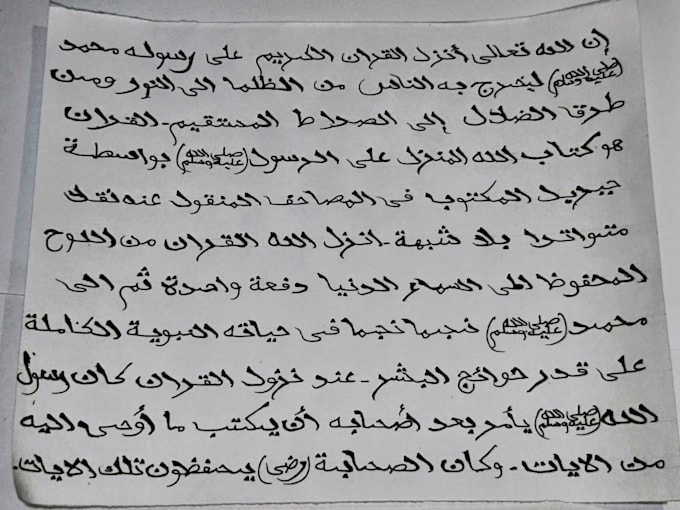 إن الله تعالى أنزل القران الكريم على رسوله محمد
(صلى الله عليه وسلم) ليخرج به الناس من الظلما الى النور ومن
طرق الضلال إلى الصراط المستقيم - القران
هو كتاب الله المنزل على الرسول (صلى الله عليه وسلم) بواسطة
جبريل المكتوب فى المصاحف المنقول عنه نقلا
متواترا بلا شبهة - انزل الله القران من اللوح
المحفوظ الى السماء الدنيا دفعة واحدة ثم الى
محمد (صلى الله عليه وسلم) نجما نجما فى حياته النبوية الكاملة
على قدر حوائج البشر - عند نزول القران كان رسول
الله (صلى الله عليه وسلم) يأمر بعد أصحابه أن يكتب ما أوحى اليه
من الايات - وكان الصحابة (رضى) يحفظون تلك الايات -